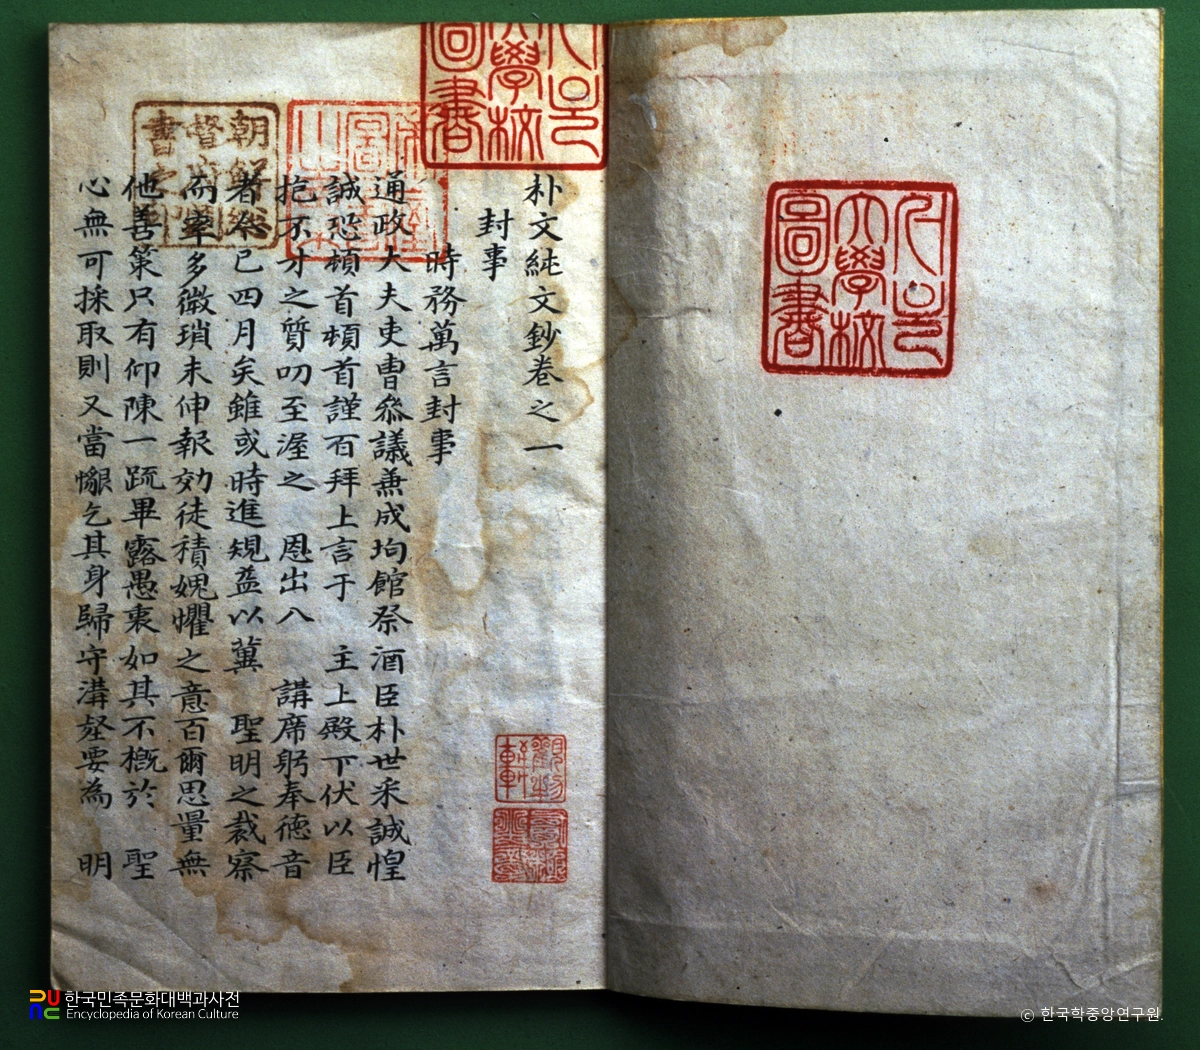 朴文純文鈔卷之一
封事
時務萬言封事
通政大夫吏曹叅議兼成均館祭酒臣朴世采誠惶
誠恐頓首頓首謹百拜上言于 主上殿下伏以臣
抱不才之質叨至渥之 恩出入 講席躬奉德音
者念已四月矣雖或時進規益以冀 聖明之裁察
而率多微瑣未伸報効徒積媿懼之意百爾思量無
他善策只有仰陳一疏畢露愚衷如其不槪於 聖
心無可採取則又當懇乞其身歸守溝壑要為 明
朝鮮總督府圖書
大學校
圖書
大學校
圖書
한국민족문화대백과사전
Encyclopedia of Korean Culture
ⓒ 한국학중앙연구원.